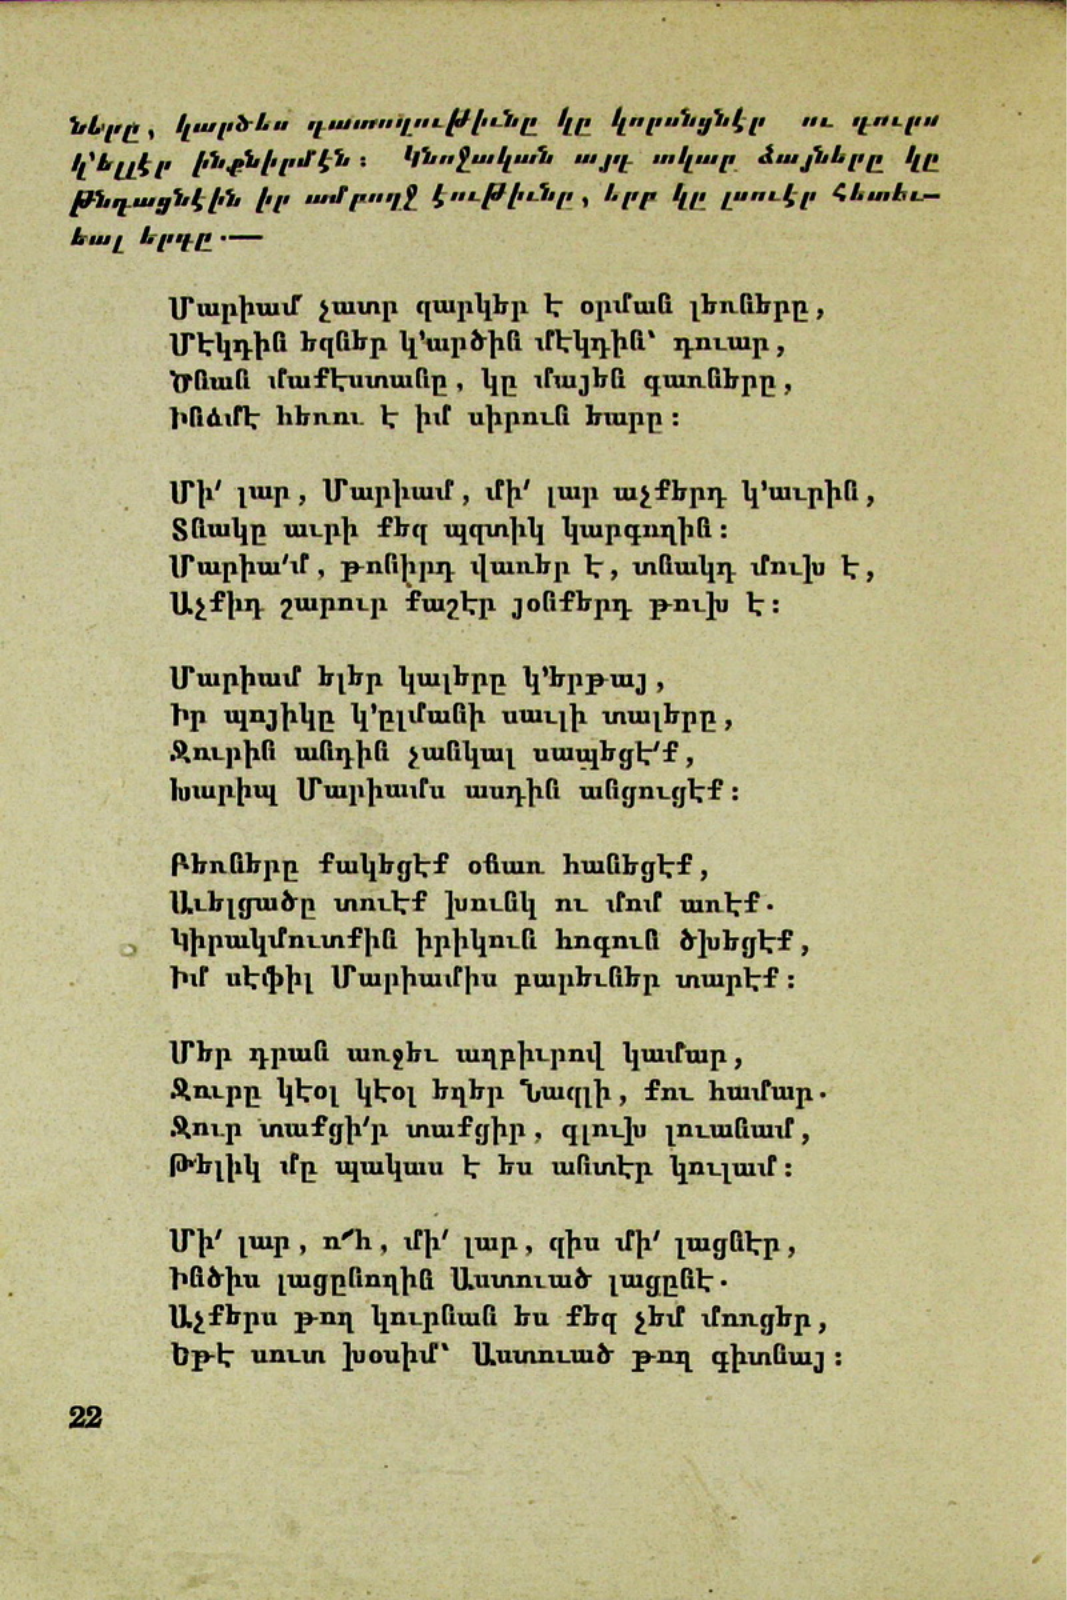 ները, կարծես դատողութիւնը կը կորսնցնէր ու դուրս
կ՚ելլէր ինքնիրմէն։ Կնոջական այդ տկար ձայները կը
թնդացնէին իր ամբողջ էութիւնը, երբ կը լսուէր հետեւ—
եալ երգը.—
Մարիամ չատր զարկեր է օրման լեռները,
Մէկդին եզներ կ՚արծին մէկդին՝ դուար,
Ծնան մաքէստանը, կը մայեն գառները,
Ինձմէ հեռու է իմ սիրուն եարը։
Մի՛ լար, Մարիամ, մի՛ լար աչքերդ կ՚աւրին,
Տնակը աւրի քեզ պզտիկ կարգողին։
Մարիա՛մ, թոնիրդ վառեր է, տնակդ մուխ է,
Աչքիդ շարուր քաշէր յօնքերդ թուխ է։
Մարիամ ելեր կալերը կ՚երթայ,
Իր պոյիկը կ՚ըլմանի սաւլի տալերը,
Ջուրին անդին չանկալ սապեցէ՛ք,
Խարիպ Մարիամս ասդին անցուցէք։
Բեռները քակեցէք օճառ հանեցէք,
Աւելցածը տուէք խունկ ու մոմ առէք.
Կիրակմուտքին իրիկուն հոգուն ծխեցէք,
Իմ սէֆիլ Մարիամիս բարեւներ տարէք։
Մեր դրան առջեւ աղբիւրով կամար,
Ջուրը կէօլ կէօլ եղեր Նազլի, քու համար.
Ջուր տաքցի՛ր տաքցիր, գլուխ լուանամ,
Թելիկ մը պակաս է ես անտէր կուլամ։
Մի՛ լար, ո՜հ, մի՛ լար, զիս մի՛ լացնէր,
Ինծիս լացընողին Աստուած լացընէ.
Աչքերս թող կուրնան ես քեզ չեմ մոռցեր,
Եթէ սուտ խօսիմ՝ Աստուած թող գիտնայ։
22